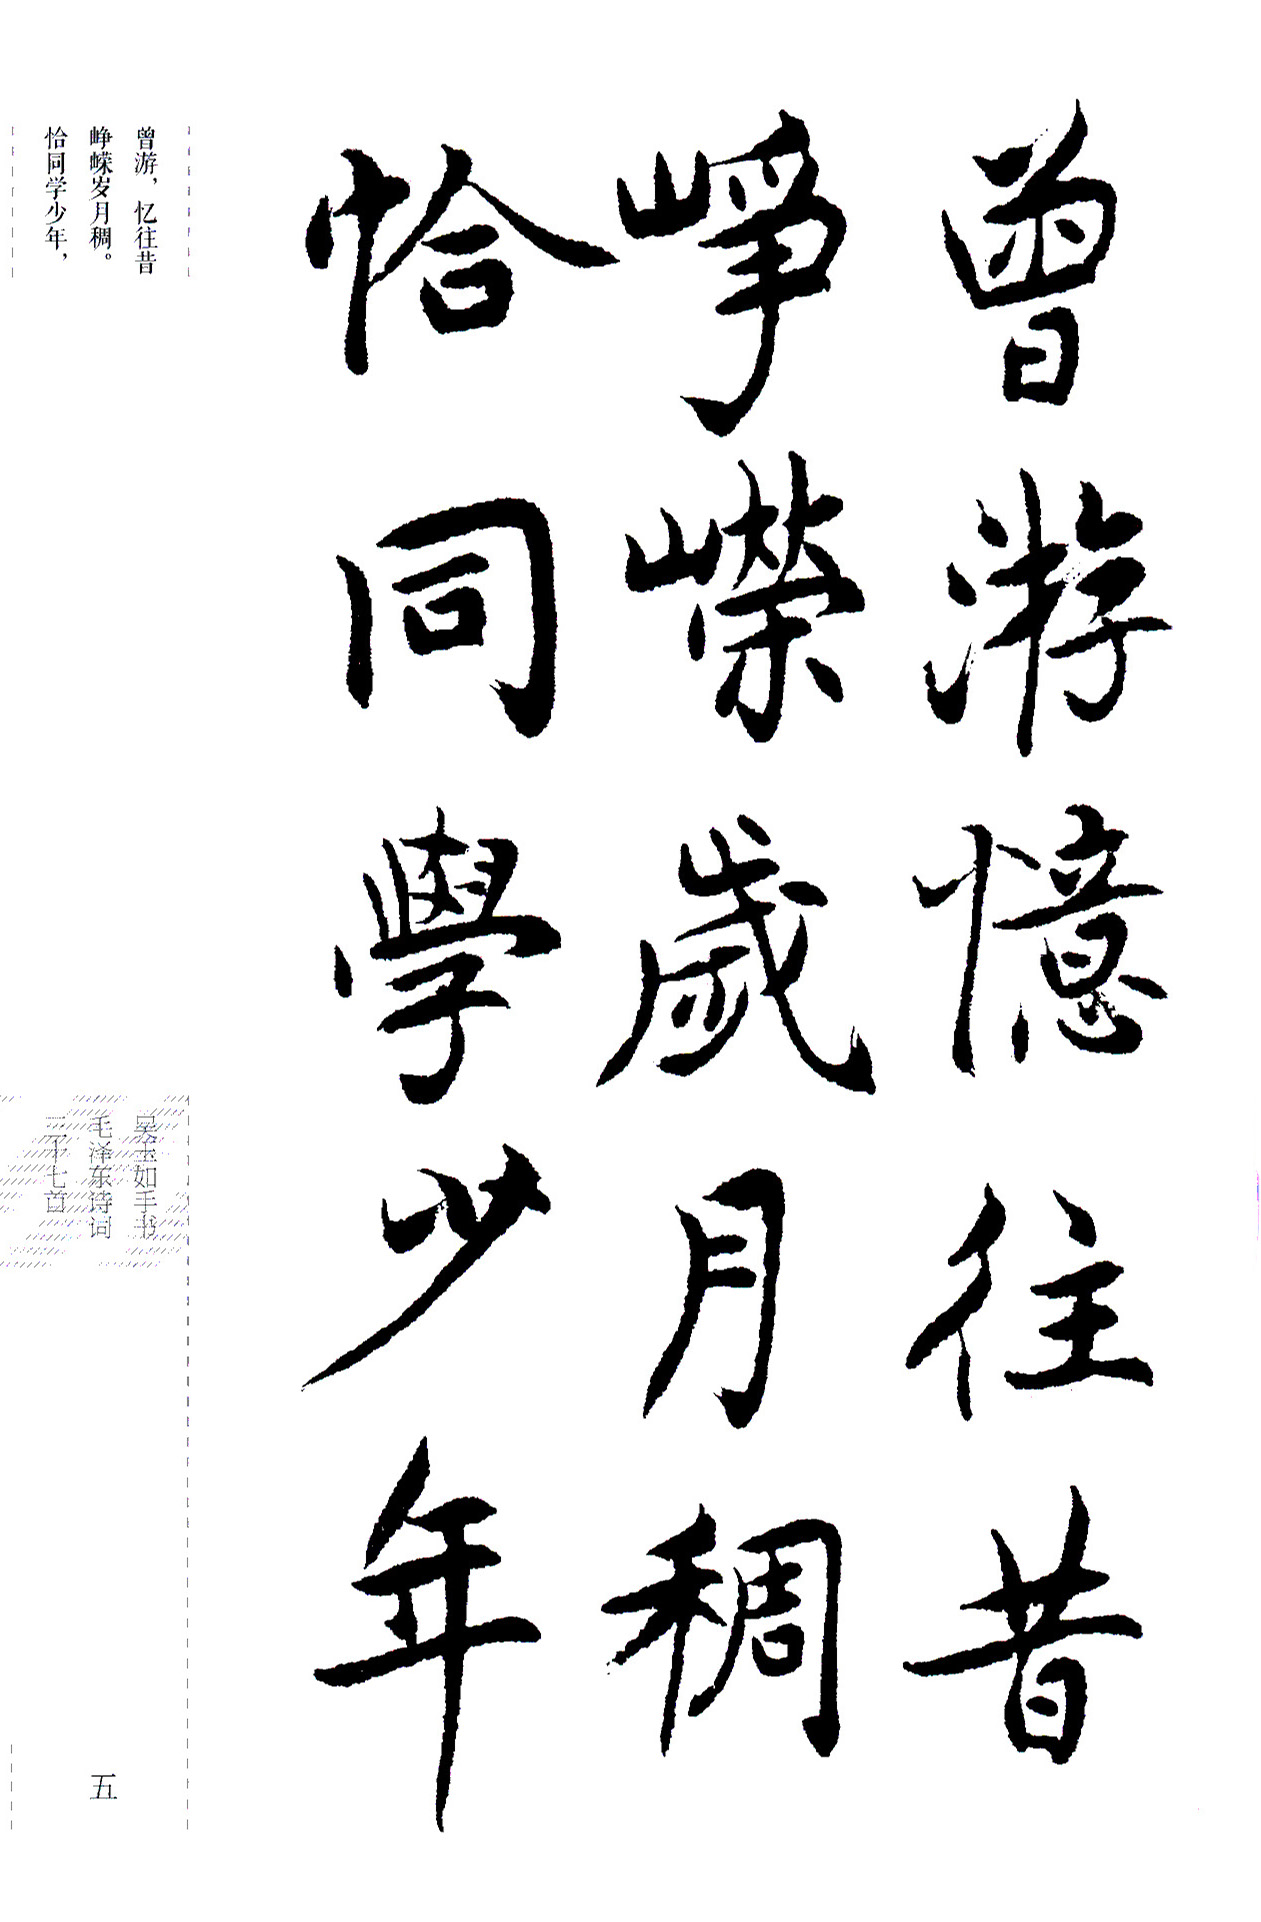 曾游憶往昔
崢嶸歲月稠
恰同學少年
曾游，忆往昔
峥嵘岁月稠。
恰同学少年，
吴玉如手书
毛泽东诗词
三十七首
五